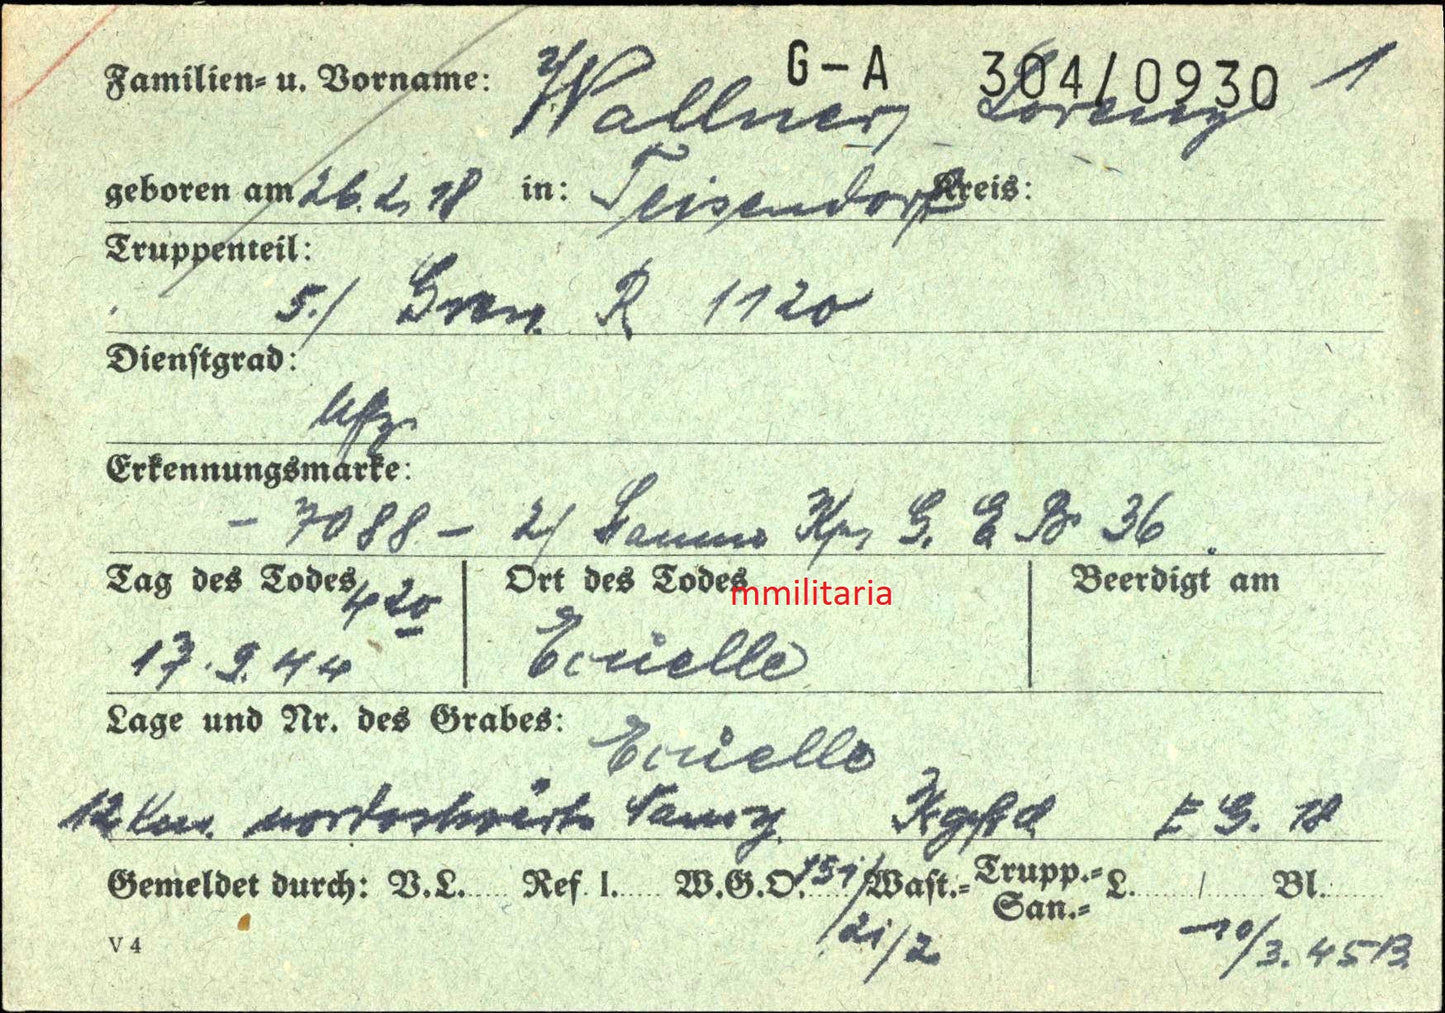 G-A 304/0930 1
Familien- u. Vorname: Wallner, Lorenz
geboren am 26.2.18 in: Teisendorf Kreis:
Truppenteil:
5./ Gren. R 1120
Dienstgrad:
Uffz.
Erkennungsmarke:
- 7088 - 2/ Stamm Kp. G. E. B. 36
Tag des Todes 4 20 Ort des Todes Beerdigt am
mmilitaria
17.9.44 Ecuelle
Lage und Nr. des Grabes: Ecuelle
12 km. nordostwärts Nancy Kgfhd E G. 18
Gemeldet durch: V.L. Ref l. W.G.O. 151/ Wast.= Trupp.= San.= L. / Bl.
V 4 21/2 10/3. 45 B.